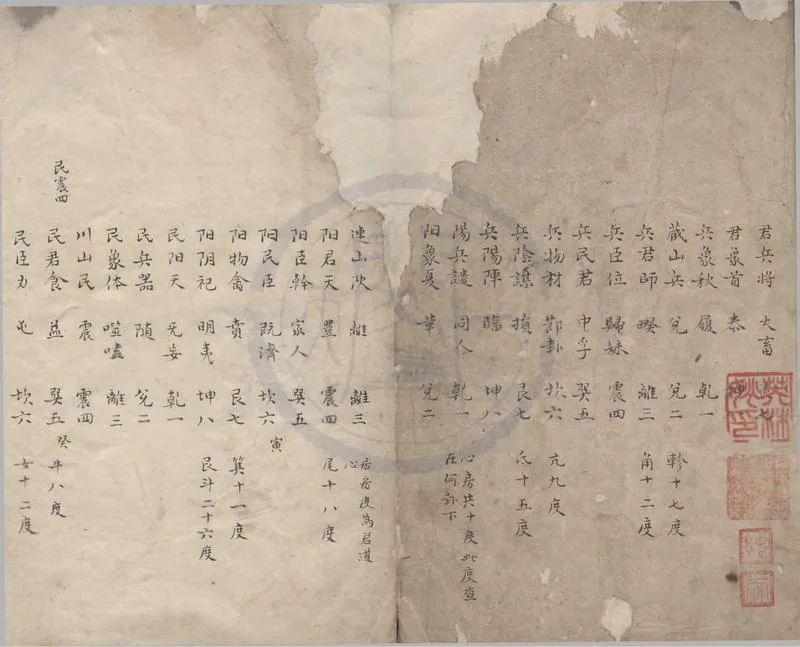 君兵將 大畜 艮七
君象首 泰 坤
兵象秋 履 乾一
藏山兵 兌 兌二 軫十七度
兵君師 睽 離三 角十二度
兵臣位 歸妹 震四
兵民君 中孚 巽五
兵物材 節卦 坎六 亢九度
兵陰謀 損 艮七 氐十五度
兵陽陣 臨 坤八
陽兵譴 同人 乾一 心房共十度此度查在何卦下
阳象夏 革 兌二
連山 離 離三 居房度為君道 心
阳君天 豊 震四 尾十八度
阳臣幹 家人 巽五
阳民臣 既濟 坎六 寅
阳物禽 賁 艮七 箕十一度
阳阴祀 明夷 坤八 艮斗二十六度
民阳天 无妄 乾一
民兵器 随 兌二
民象体 噬嗑 離三
川山民 震 震四
民震四
民君食 益 巽五 癸 牛八度
民臣力 屯 坎六 女十二度